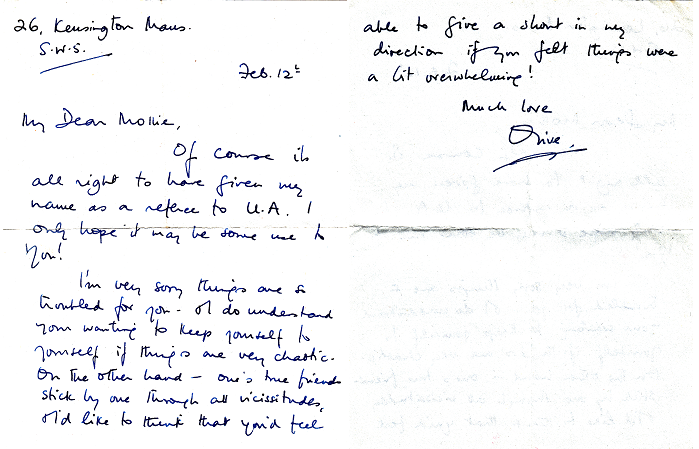 26, Kensington Mans.
S.W.5.
Feb. 12th
My Dear Mollie,
Of course its
all right to have given my
name as a referee to U.A. I
only hope it may be some use to
you!
I'm very sorry things are so
troubled for you - & I do understand
your wanting to keep yourself to
yourself if things are very chaotic.
On the other hand - one's true friends
stick by one through all vicissitudes,
& I'd like to think that you'd feel
able to give a shout in my
direction if you felt things were
a bit overwhelming!
Much love
Olive.